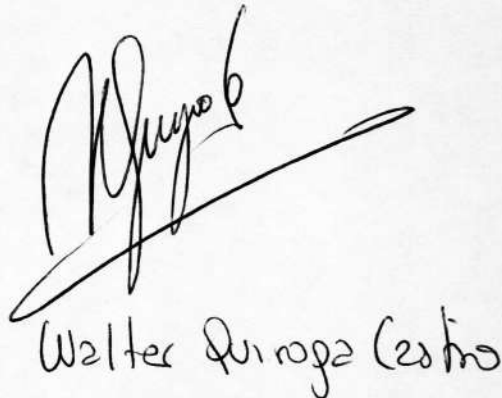 Walter Quiroga Castro